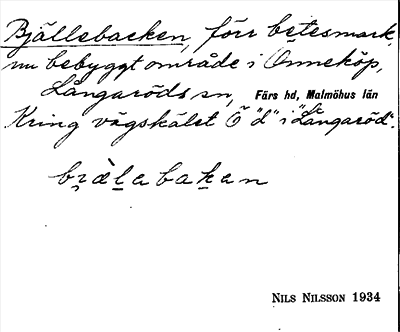 Bjällebacken, förr betesmark,
nu bebyggt område i Onneköp,
Långaröds sn, Färs hd, Malmöhus län
Kring vägskälet Ö "d" i "Långaröd".
NILS NILSSON 1934